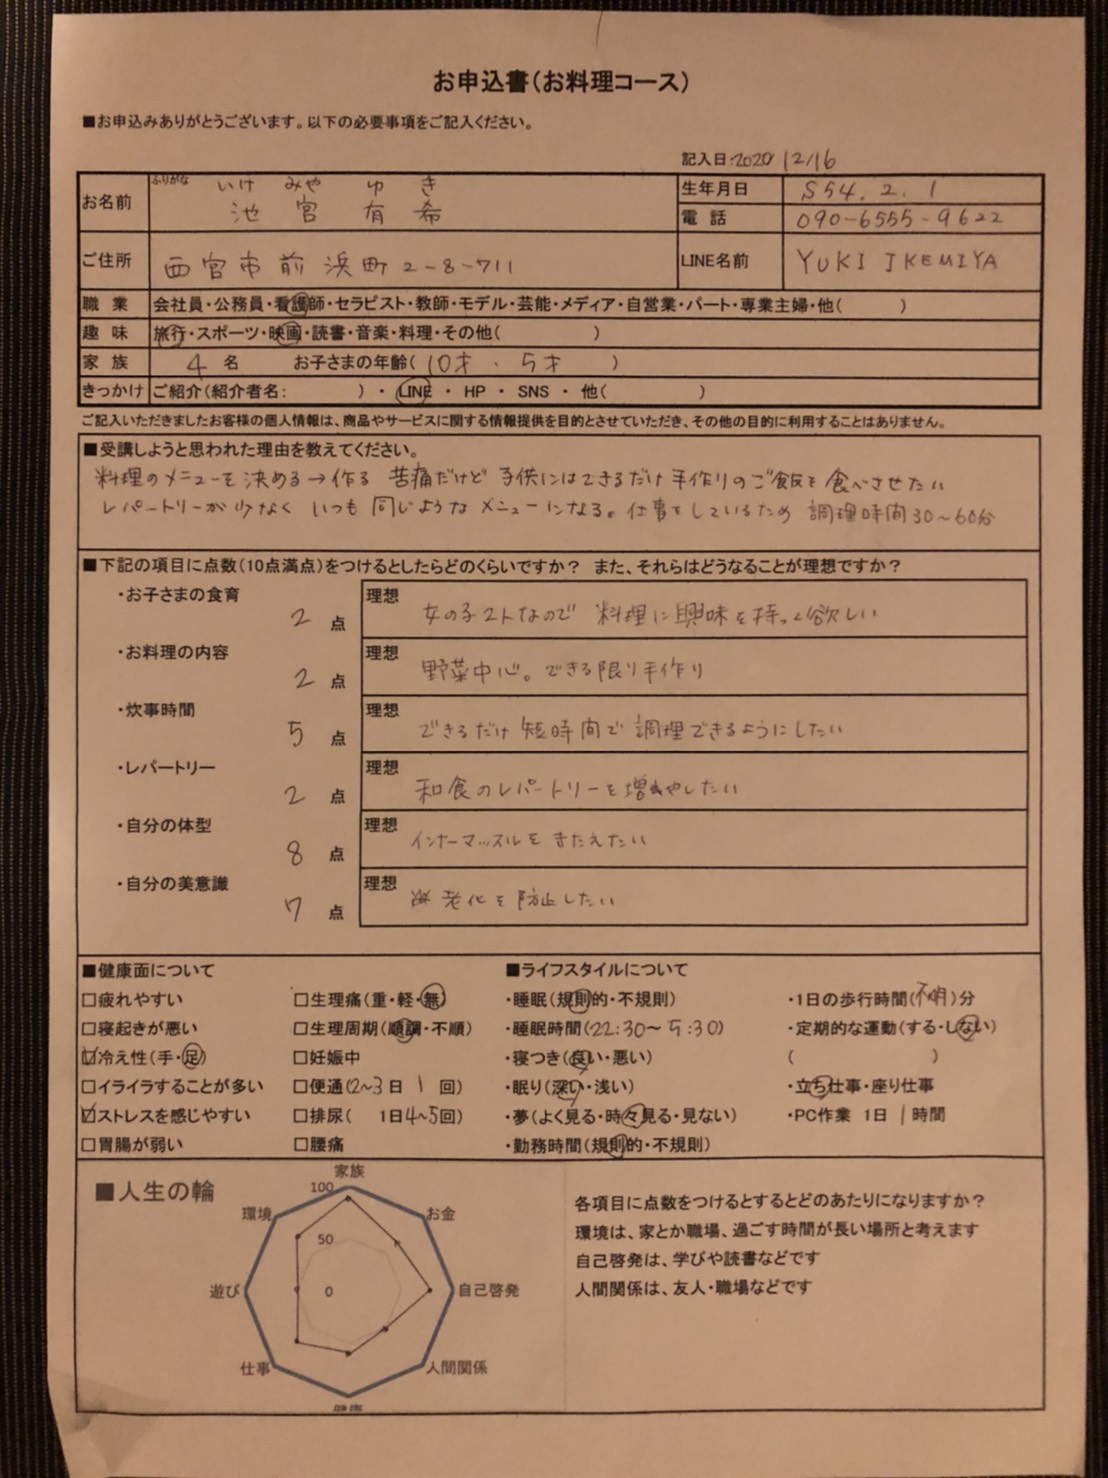 お申込書(お料理コース)
■お申込みありがとうございます。以下の必要事項をご記入ください。
記入日:2020 12/16
ふりがな いけ みや ゆ き
お名前 池 宮 有 希
生年月日 S54. 2. 1
電 話 090-6555-9622
ご住所 西宮市前浜町2-8-711
LINE名前 YUKI IKEMIYA
職 業 会社員・公務員・看護師・セラピスト・教師・モデル・芸能・メディア・自営業・パート・専業主婦・他( )
趣 味 旅行・スポーツ・映画・読書・音楽・料理・その他( )
家 族 4 名 お子さまの年齢( 10才・5才 )
きっかけ ご紹介(紹介者名: )・ LINE ・ HP ・ SNS ・ 他( )
ご記入いただきましたお客様の個人情報は、商品やサービスに関する情報提供を目的とさせていただき、その他の目的に利用することはありません。
■受講しようと思われた理由を教えてください。
料理のメニューを決める→作る 苦痛だけど 子供にはできるだけ手作りのご飯を食べさせたい
レパートリーが少なく いつも同じようなメニューになる。仕事をしているため 調理時間30〜60分
■下記の項目に点数(10点満点)をつけるとしたらどのくらいですか? また、それらはどうなることが理想ですか?
・お子さまの食育 2 点 理想 女の子2人なので 料理に興味を持って欲しい
・お料理の内容 2 点 理想 野菜中心。できる限り手作り
・炊事時間 5 点 理想 できるだけ短時間で調理できるようにしたい
・レパートリー 2 点 理想 和食のレパートリーを増やしたい
・自分の体型 8 点 理想 インナーマッスルをきたえたい
・自分の美意識 7 点 理想 老化を防止したい
■健康面について
□疲れやすい
□寝起きが悪い
☑冷え性(手・足)
□イライラすることが多い
☑ストレスを感じやすい
□胃腸が弱い
□生理痛(重・軽・無)
□生理周期(順調・不順)
□妊娠中
□便通(2〜3日 1 回)
□排尿( 1日4〜5回)
□腰痛
■ライフスタイルについて
・睡眠(規則的・不規則)
・睡眠時間(22:30〜5:30)
・寝つき(良い・悪い)
・眠り(深い・浅い)
・夢(よく見る・時々見る・見ない)
・勤務時間(規則的・不規則)
・1日の歩行時間(不明)分
・定期的な運動(する・しない)
( )
・立ち仕事・座り仕事
・PC作業 1日 1時間
■人生の輪
家族
100
お金
環境
50
自己啓発
遊び
0
人間関係
仕事
健康
各項目に点数をつけるとするとどのあたりになりますか?
環境は、家とか職場、過ごす時間が長い場所と考えます
自己啓発は、学びや読書などです
人間関係は、友人・職場などです